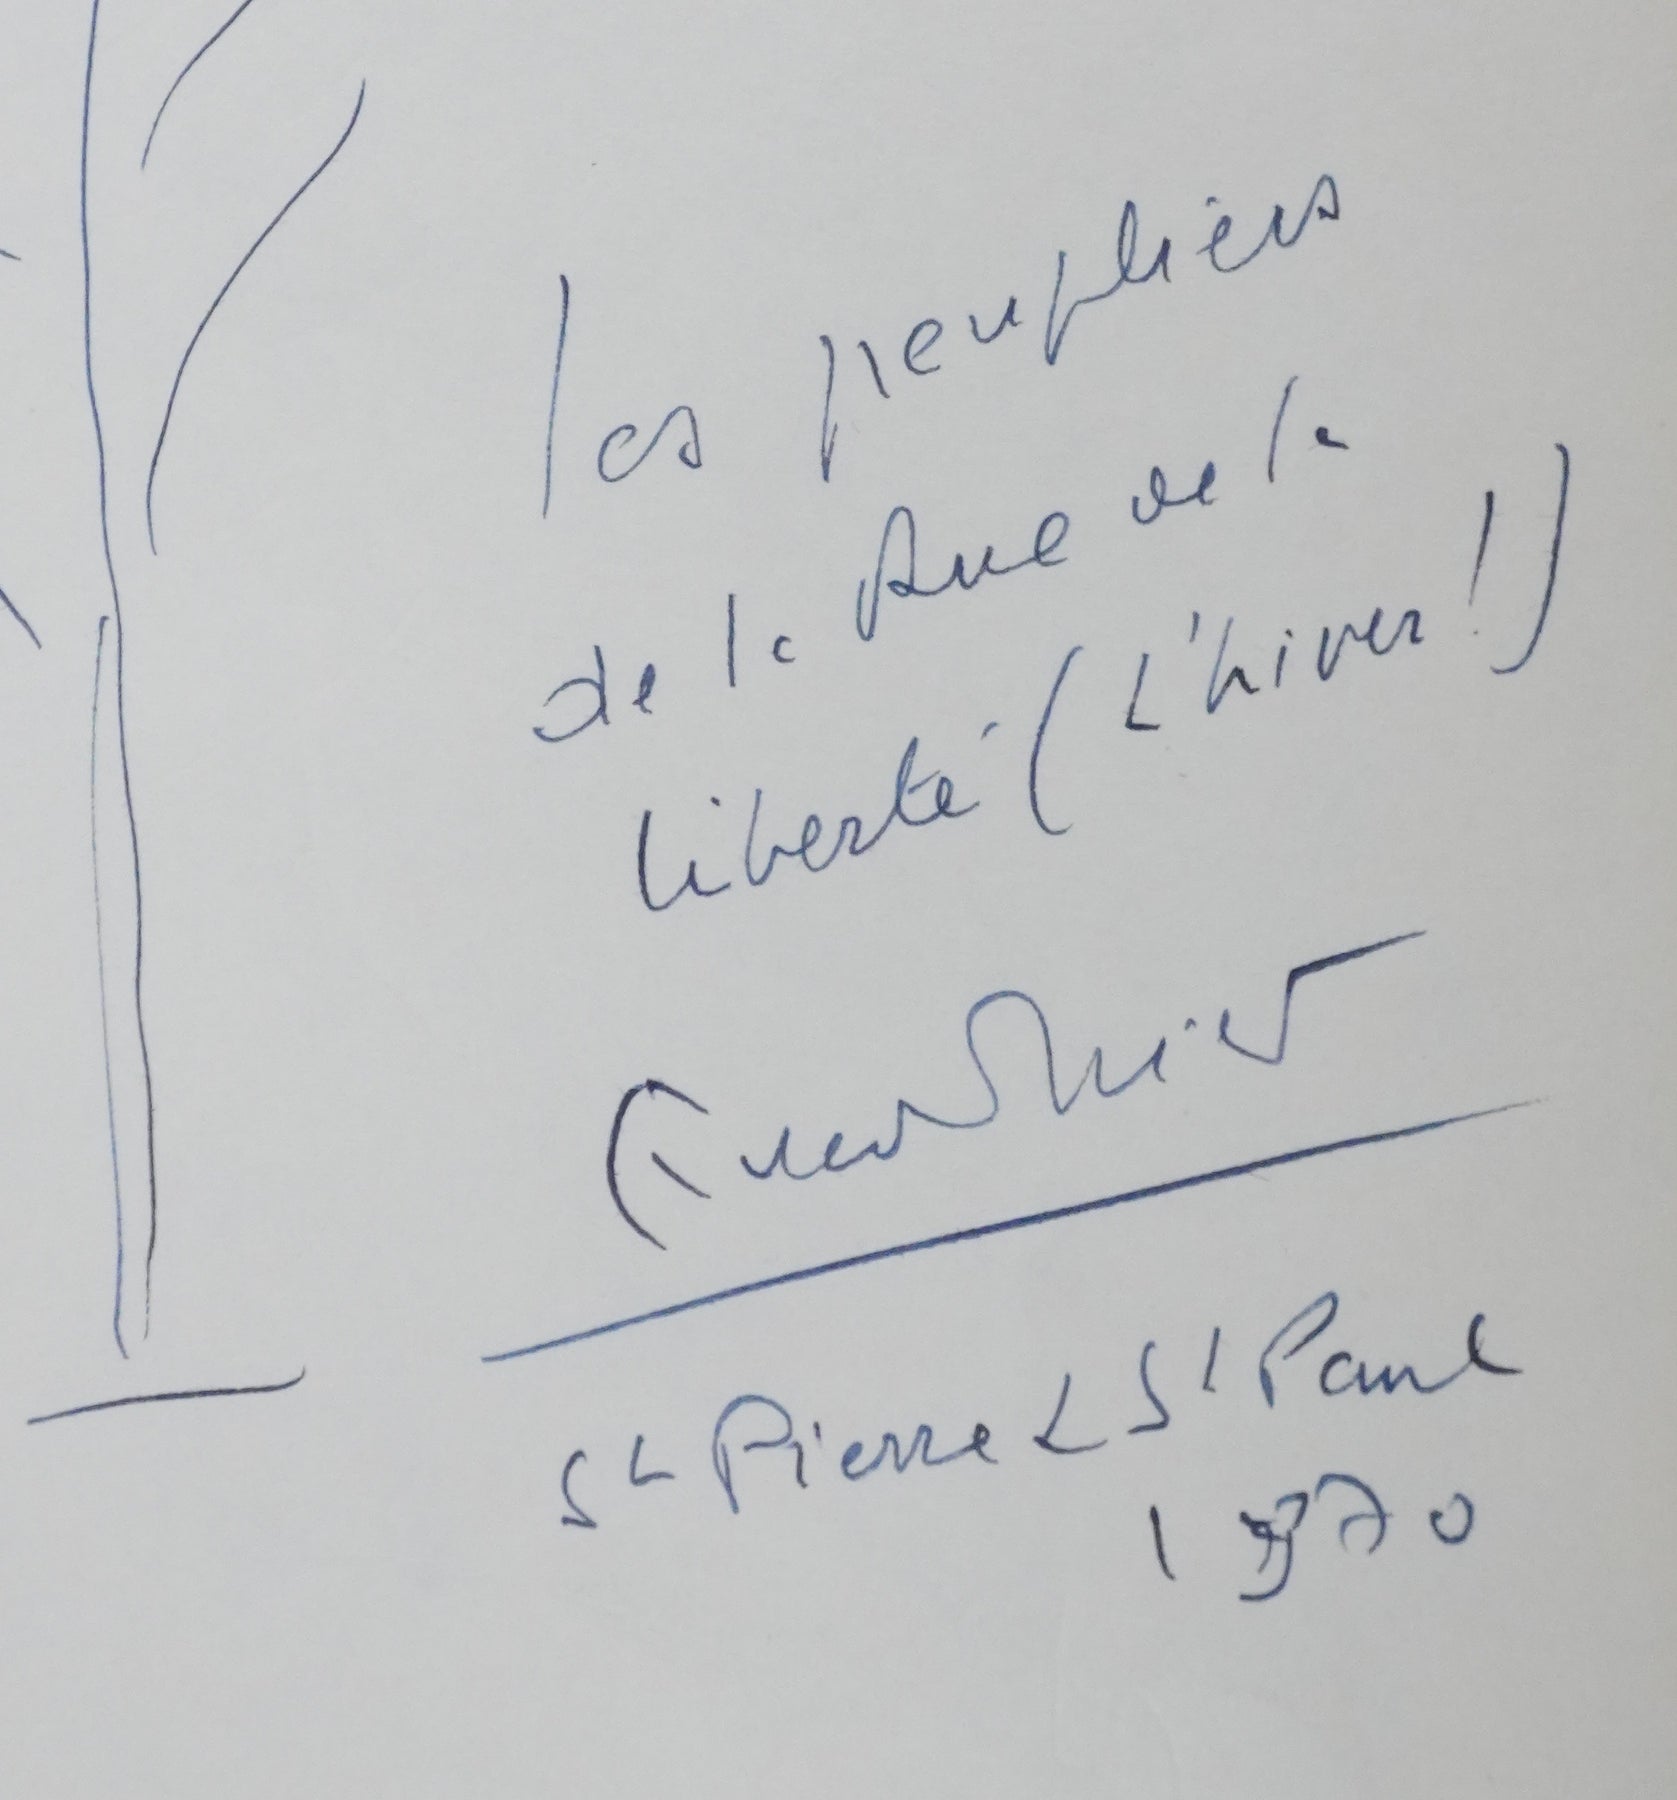 les peupliers
de la Rue de la
liberté (L'hiver!)
St Pierre & St Paul
1970